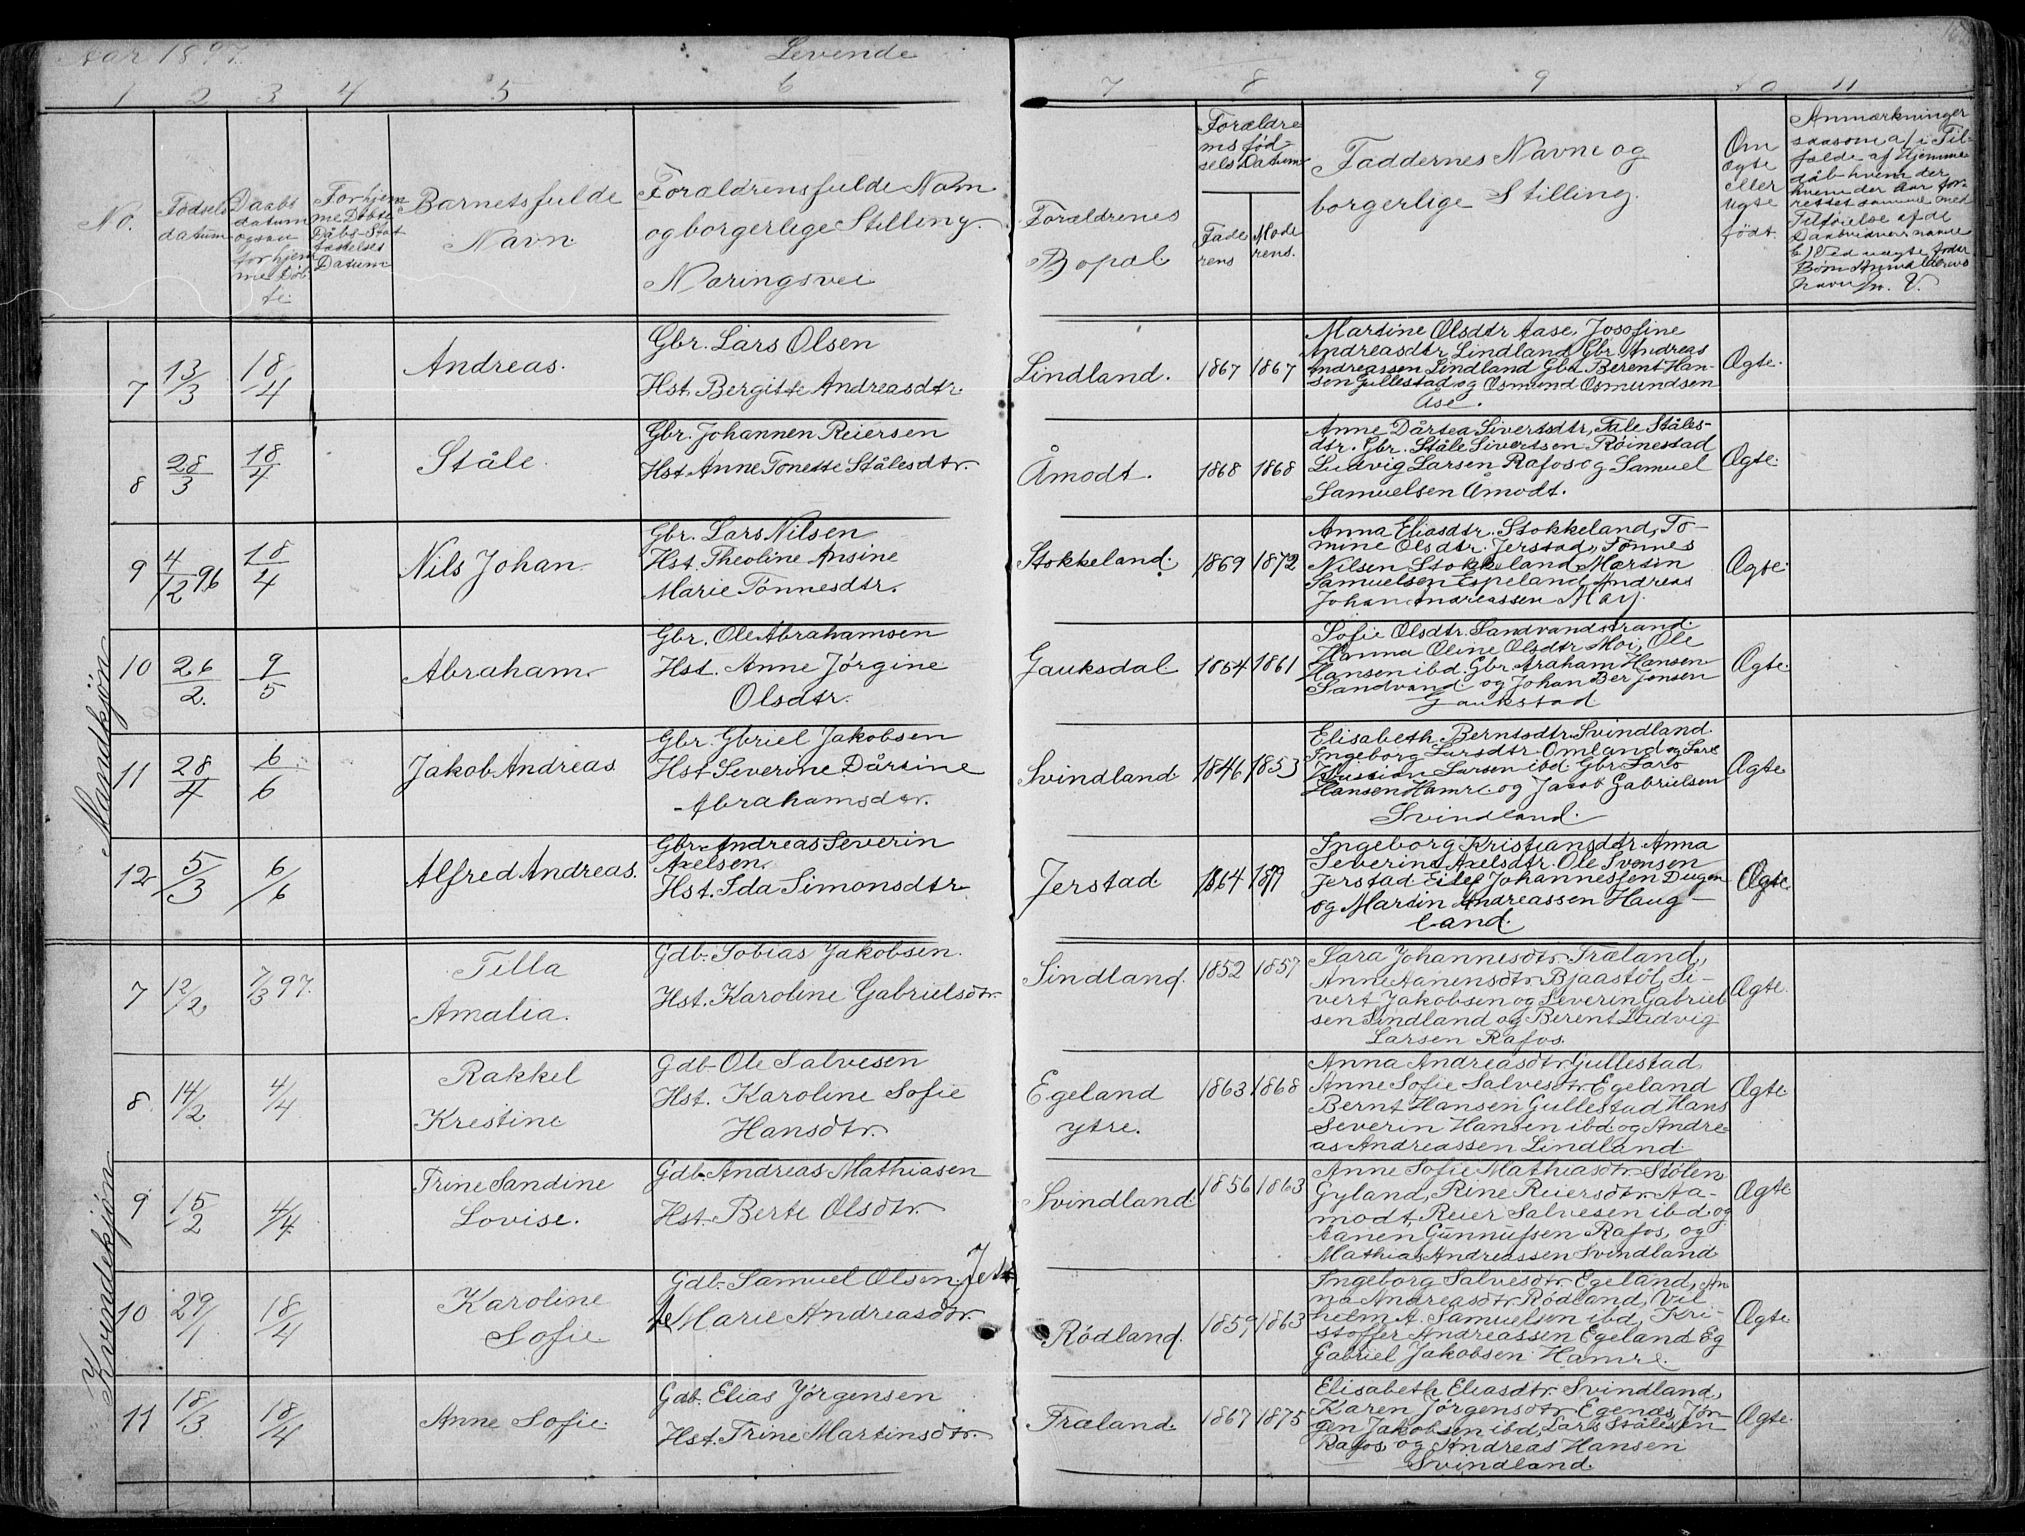 Aar 1897.
Levende
1 2 3 4 5 6
7 8 9 10 11
No.
Fødsels
datum
Daabs
datum
ogsaa
for hjem
me Døb
te.
For hjem
me Døbte
Dåbs-Stat
fæstelses
Datum
Barnets fulde
Navn.
Forældrens fulde Navn
og borgerlige Stilling.
Næringsvei
Forældrenes
Bopæl
Forældre
nes fød-
sels Datum
Fade
rens
Mode
rens.
Faddernes Navne og
borgerlige Stilling.
Om
ægte
eller
uægte
født
Anmærkninger
Mandkjøn
7
13/3
18/4
Andreas.
Gbr. Lars Olsen
Hst. Bergitte Andreasdtr.
Lindland.
1867
1867
Martine Olsdtr Aase, Josofine
Andreasdtr Lindland Gbr. Andreas
Andreassen Lindland Gbr Berent Han-
sen Gullestad og Osmund Osmundsen
Åse.
Ægte.
8
28/3
18/4
Ståle.
Gbr. Johannen Reiersen
Hst Anne Tonette Stålesdtr.
Åmodt.
1868
1868
Anne Dårtea Sivertsdtr, Tale Ståles-
dtr. Gbr. Ståle Sivertsen Røinestad
Ludvig Larsen Rafos og Samuel
Samuelsen Åmodt.
Ægte.
9
4/12 96
18/4
Nils Johan.
Gbr. Lars Nilsen
Hst. Theoline Ansine
Marie Tønnesdtr.
Stokkeland.
1869
1872
Anna Eliasdtr. Stokkeland, To-
mine Olsdtr. Jerstad, Tønnes
Nilsen Stokkeland Martin
Samuelsen Espeland Andreas
Johan Andreassen Moy.
Ægte
10
26/2.
9/5
Abraham.
Gbr. Ole Abrahamsen
Hst. Anne Jørgine
Olsdtr.
Gauksdal
1854
1861
Sofie Olsdtr. Sandvandstrand.
Hanna Oline Olsdtr Moi, Ole
Hansen ibd Gbr Araham Hansen
Sandvand og Johan Ber Jensen
Gaukstad
Ægte.
11
28/4
6/6
Jakob Andreas.
Gbr. Gbriel Jakobsen
Hst Severine Dårtine
Abrahamsdtr.
Svindland
1846
1853
Elisabeth Berntsdtr Svindland.
Ingeborg Larsdtr Omland og Lars
Larsen ibd Gbr Lars
Hansen Hamre og Jacob Gabrielsen
Svindland.
Ægte
12
5/3
6/6
Alfred Andreas.
Gbr. Andreas Severin
Axelsen.
Hst. Ida Simonsdtr
Jerstad
1864
Ingeborg Kristiansdtr Anna
Severine Axelsdtr. Ole Svensen
Jerstad Eilef Johannessen Dugan
og Martin Andreassen Haug-
land.
Ægte
Kvindekjøn
7
12/2
7/3 97.
Tella
Amalia.
Gdb. Tobias Jakobsen.
Hst. Karoline Gabrielsdtr.
Sindland.
1852
1857
Sara Johannesdtr Træland,
Anne Aanensdtr. Bjaastøl, Si-
vert Jakobsen og Severin Gabriel
sen Sindland og Berent Ludvig
Larsen Rafos.
Ægte.
8
14/2
4/4
Rakkel
Krestine
Gdb Ole Salvesen
Hst. Karoline Sofie
Hansdtr.
Egeland
ytre.
1863
1868
Anna Andreasdtr Gullestad
Anne Sofie Salvesdtr Egeland
Bernt Hansen Gullestad Hans
Severin Hansen ibd og Andre-
as Andreassen Lindland.
Ægte
9
15/2
4/4
Trine Sandine
Lovise.
Gdb. Andreas Mathiasen
Hst. Berte Olsdtr.
Svindland
1856
1863
Anne Sofie Mathiasdtr Stølen
Gyland, Rine Reiersdtr Aa-
modt, Reier Salvesen ibd, og
Aanen Gunnufsen Rafos, og
Mathias Andreassen Svindland
Ægte
10
29/1
18/4
Karoline
Sofie
Gdb. Samuel Olsen.
Marie Andreasdtr.
Rødland.
1859
1863
Ingeborg Salvesdtr Egeland, An
na Andreasdtr Rødland, Vil
helm A. Samuelsen ibd, Kri-
stoffer Andreassen Egeland Eg
Gabriel Jakobsen Hamre.
Ægte
11
18/3
18/4
Anne Sofie.
Gdb. Elias Jørgensen
Hst. Trine Martinsdtr.
Træland.
1867
1875
Elisabeth Eliasdtr Svindland,
Karen Jørgensdtr Egenæs, Jør-
gen Jakobsen ibd, Lars Stålesen
Rafos og Andreas Hansen
Svindland
Ægte.